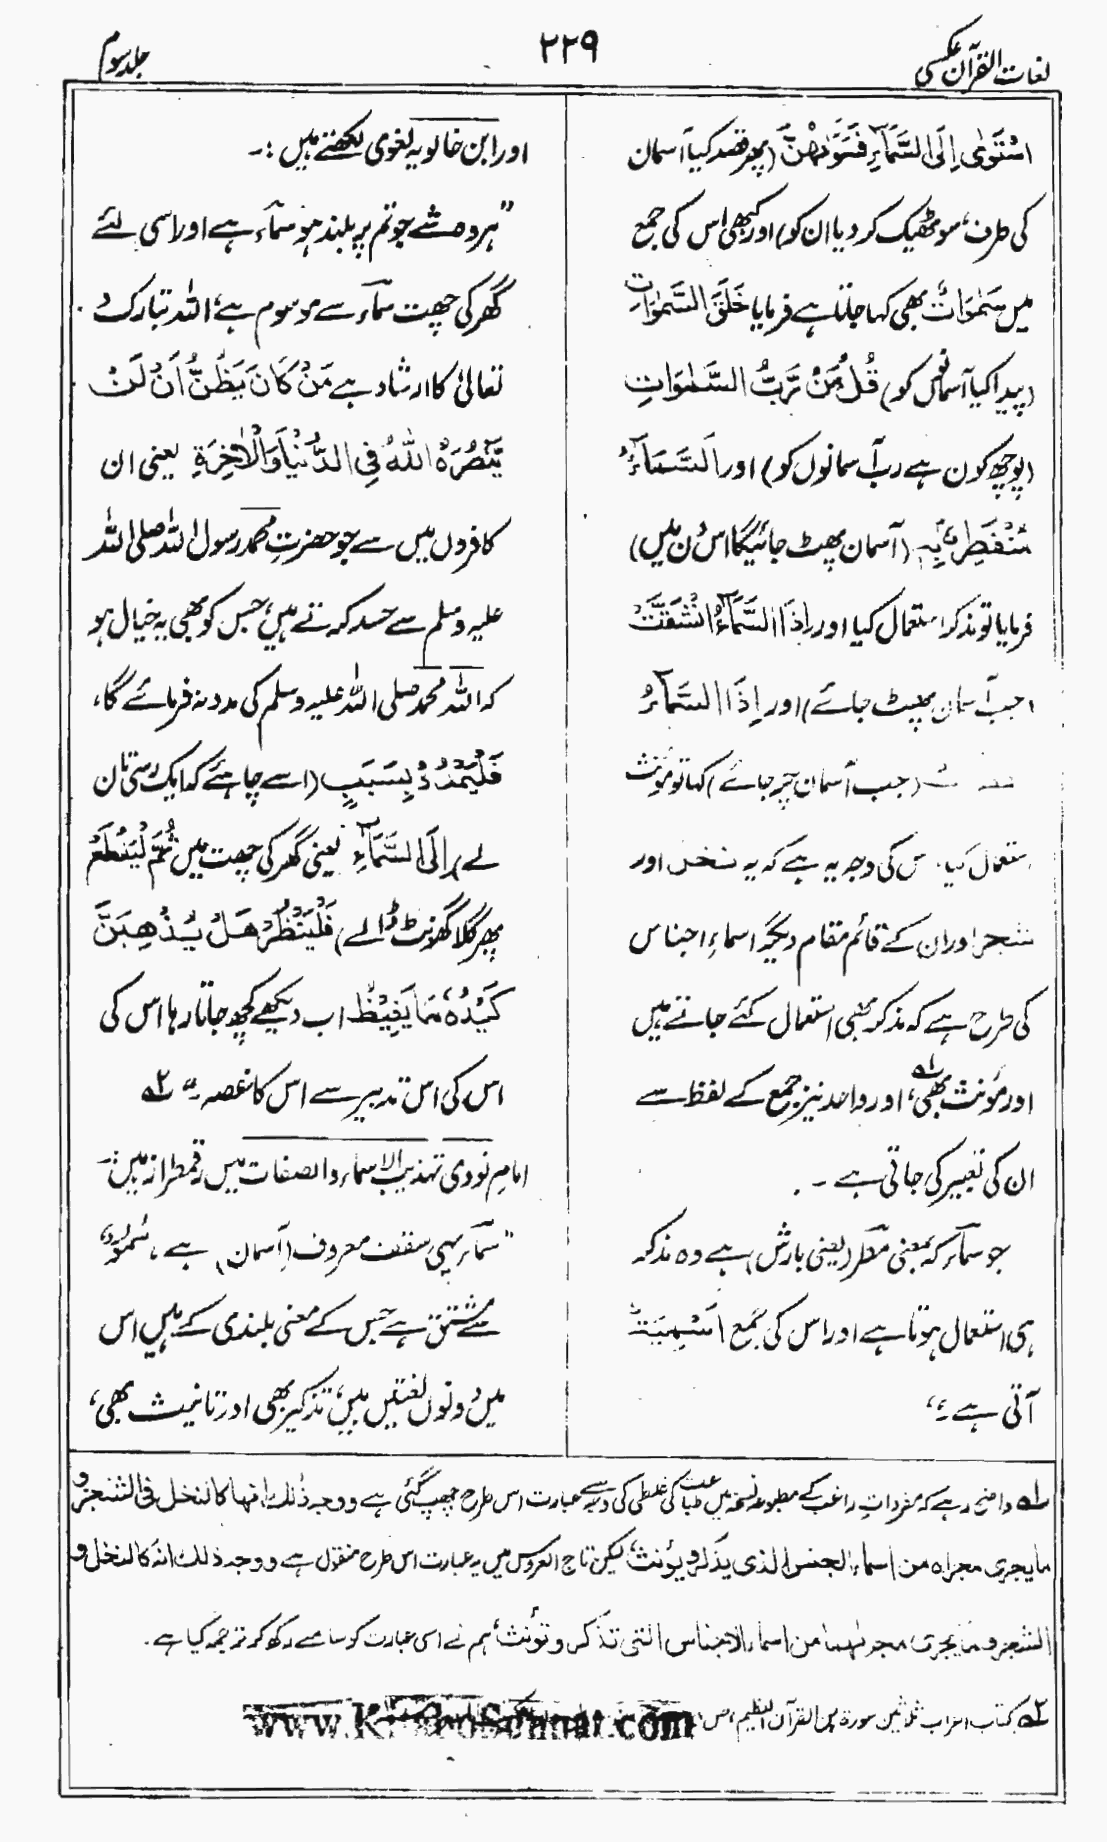 لغات القرآن عکسی
۲۲۹
جلد سوم
اسْتَوٰى اِلَى السَّمَآءِ فَسَوّٰىهُنَّ (پھر قصد کیا آسمان
کی طرف، سو ٹھیک کر دیا ان کو) اور کبھی اس کی جمع
میں سَمٰوَاتٌ بھی کہا جاتا ہے فرمایا خَلَقَ السَّمٰوَاتِ
(پیدا کیا آسمانوں کو) قُلْ مَنْ رَّبُّ السَّمٰوَاتِ
(پوچھ کون ہے رب آسمانوں کو) اور اَلسَّمَآءُ
مُنْفَطِرٌۢ بِهٖ (آسمان پھٹ جائیگا اس دن میں)
فرمایا تو مذکر استعمال کیا اور اِذَا السَّمَآءُ انْشَقَّتْ
(جب آسمان پھٹ جائے) اور اِذَا السَّمَآءُ
(جب آسمان چر جائے) کہا تو مؤنث
استعمال کیا۔ اس کی وجہ یہ ہے کہ یہ نخل اور
شجر اور ان کے قائم مقام دیگر اسماء اجناس
کی طرح ہے کہ مذکر بھی استعمال کئے جاتے ہیں
اور مؤنث بھی،۱؎ اور واحد نیز جمع کے لفظ سے
ان کی تعبیر کی جاتی ہے ۔
جو سماء کہ بمعنی مطر (یعنی بارش) ہے وہ مذکر
ہی استعمال ہوتا ہے اور اس کی جمع اَسْمِيَةٌ
آتی ہے۔"
اور ابن خالویہ لغوی لکھتے ہیں :۔
"ہر وہ شے جو تم پر بلند ہو سماء ہے اور اسی لئے
گھر کی چھت سماء سے موسوم ہے، اللہ تبارک و
تعالیٰ کا ارشاد ہے مَنْ كَانَ يَظُنُّ اَنْ لَّنْ
يَّنْصُرَهُ اللّٰهُ فِي الدُّنْيَا وَالْاٰخِرَةِ یعنی ان
کافروں میں سے جو حضرت محمد رسول اللہ صلی اللہ
علیہ وسلم سے حسد کرتے ہیں، جس کو بھی یہ خیال ہو
کہ اللہ محمد صلی اللہ علیہ وسلم کی مدد نہ فرمائے گا،
فَلْيَمْدُدْ بِسَبَبٍ (اسے چاہئے کہ ایک رسی تان
لے) اِلَى السَّمَآءِ یعنی گھر کی چھت میں ثُمَّ لْيَقْطَعْ
پھر گلا گھونٹ ڈالے) فَلْيَنْظُرْ هَلْ يُذْهِبَنَّ
كَيْدُهٗ مَا يَغِيْظُ اب دیکھے کچھ جاتا رہا اس کی
اس کی اس تدبیر سے اس کا غصہ۔" ۲؎
امام نووی تہذیب الاسماء والصفات میں رقمطراز ہیں:۔
"سماء یہی سقف معروف (آسمان) ہے، سُمُوّ
سے مشتق ہے جس کے معنی بلندی کے ہیں اس
میں دونوں لغتیں ہیں، تذکیر بھی اور تانیث بھی،
۱؎ واضح رہے کہ مفردات راغب کے مطبوعہ نسخہ میں طباعت کی غلطی کی وجہ سے عبارت اس طرح چھپ گئی ہے ووجہ ذٰلک انہا کالنخل فی الشجر و
مایجری مجراہ من اسماء الجنس الذی یذکر ویؤنث، لیکن تاج العروس میں یہ عبارت اس طرح منقول ہے ووجہ ذلک انہ کالنخل و
الشجر ومایجری مجراہما من اسماء الاجناس التی تذکر وتؤنث، ہم نے اسی عبارت کو سامنے رکھ کر ترجمہ کیا ہے۔
۲؎ کتاب اعراب ثلاثین سورۃ من القرآن العظیم، ص
www.KitaboSunnat.com